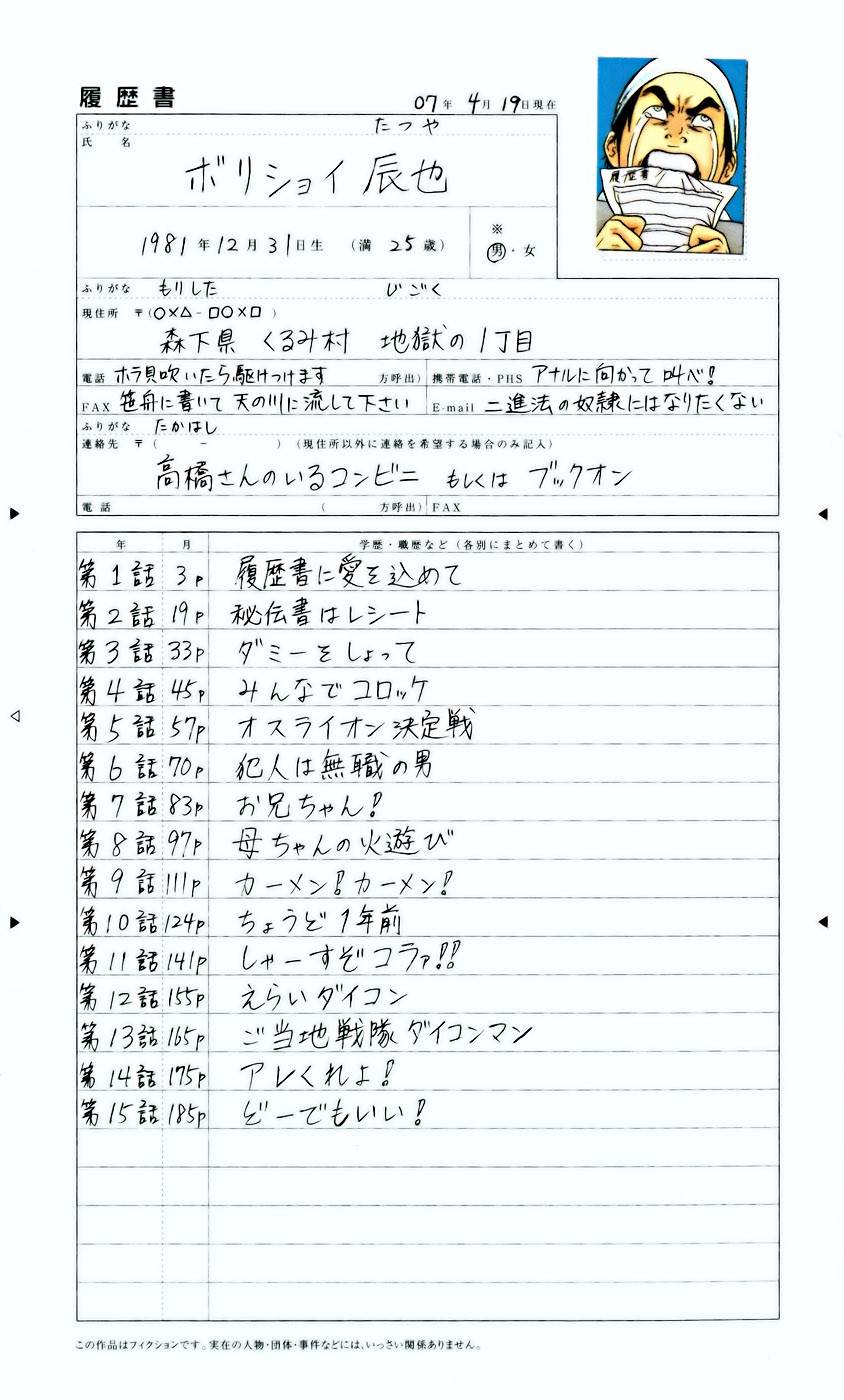 履歴書
07年 4月 19日現在
履歴書
ふりがな たつや
氏 名
ボリショイ 辰也
1981年12月31日生 (満 25歳)
※
男・女
ふりがな もりした じごく
現住所 〒(○×△-□○×□)
森下県 くるみ村 地獄の1丁目
電話 ホラ貝吹いたら駆けつけます 方呼出) 携帯電話・PHS アナルに向かって叫べ!
FAX 笹舟に書いて天の川に流して下さい E-mail 二進法の奴隷にはなりたくない
ふりがな たかはし
連絡先 〒( - ) (現住所以外に連絡を希望する場合のみ記入)
高橋さんのいるコンビニ もしくは ブックオン
電話 ( 方呼出) FAX
年 月 学歴・職歴など(各別にまとめて書く)
第1話 3p 履歴書に愛を込めて
第2話 19p 秘伝書はレシート
第3話 33p ダミーをしょって
第4話 45p みんなでコロッケ
第5話 57p オスライオン決定戦
第6話 70p 犯人は無職の男
第7話 83p お兄ちゃん!
第8話 97p 母ちゃんの火遊び
第9話 111p カーメン!カーメン!
第10話 124p ちょうど1年前
第11話 141p しゃーすぞコラァ!!
第12話 155p えらいダイコン
第13話 165p ご当地戦隊ダイコンマン
第14話 175p アレくれよ!
第15話 185p どーでもいい!
この作品はフィクションです。実在の人物・団体・事件などには、いっさい関係ありません。